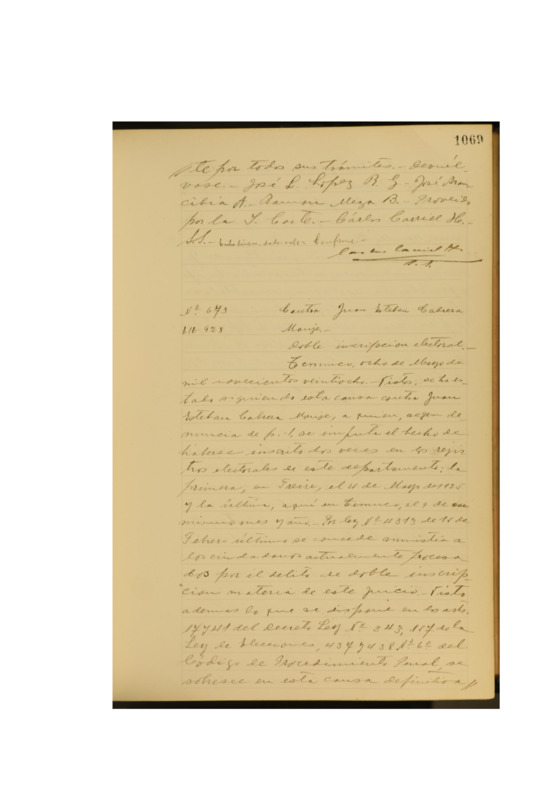 1069
te por todos sus trámites.- Devuél-
vase.- José L. Lopez R G.- José Aran
cibia A.- Ramon Meza B.- Proveido
por la I. Corte.- Cárlos Carriel H.-
S.S.-
Carlos Carriel H.
S. S.
Nº 673 Contra Juan Esteban Cabrera
928 Monje.-
Doble inscripcion electoral.-
Temuco, ocho de Mayo de
mil novecientos veintiocho.- Vistos: se ha es-
tado siguiendo esta causa contra Juan
Esteban Cabrera Monje, a quien, segun de-
nuncia de f. 1, se imputa el hecho de
haberse inscrito dos veces en los rejis-
tros electorales de este departamento: la
primera, en Freire, el 4 de Mayo de 1925
y la última, aquí en Temuco, el 9 de ese
mismo mes y año.- Por ley Nº 4319 de 10 de
Febrero último se concede amnistia a
los ciudadanos actualmente procesa
dos por el delito de doble inscrip-
cion materia de este juicio.- Visto
ademas lo que se dispone en los arts.
del Decreto Ley Nº 343, 117 de la
Ley de Elecciones, 437 y 438 Nº 6º del
Código de Procedimiento Penal, se
sobresee en esta causa definitiva